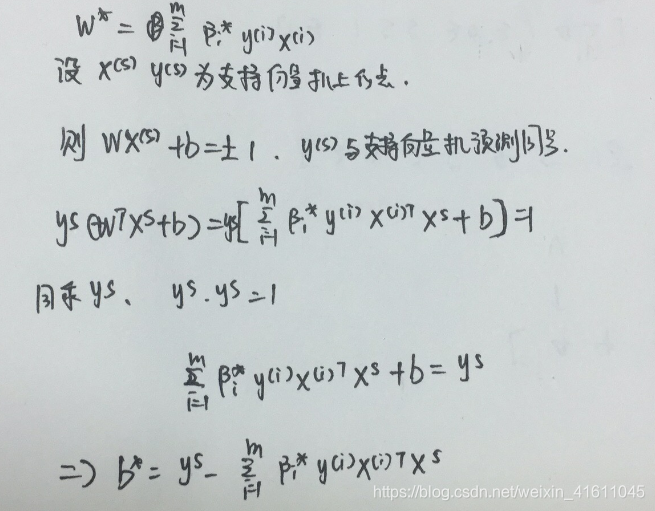 W* = Σ_{i=1}^{m} βi* y(i) x(i)
设 x(s) y(s) 为支持向量机上的点.
则 Wx(s) + b = ± 1 . y(s) 与支持向量机预测同号.
ys (W^T x^s + b) = ys [ Σ_{i=1}^{m} βi* y(i) x(i)T x^s + b ] = 1
同乘 ys、 ys . ys = 1
Σ_{i=1}^{m} βi* y(i) x(i)T x^s + b = ys
=> b* = ys - Σ_{i=1}^{m} βi* y(i) x(i)T x^s
https://blog.csdn.net/weixin_41611045